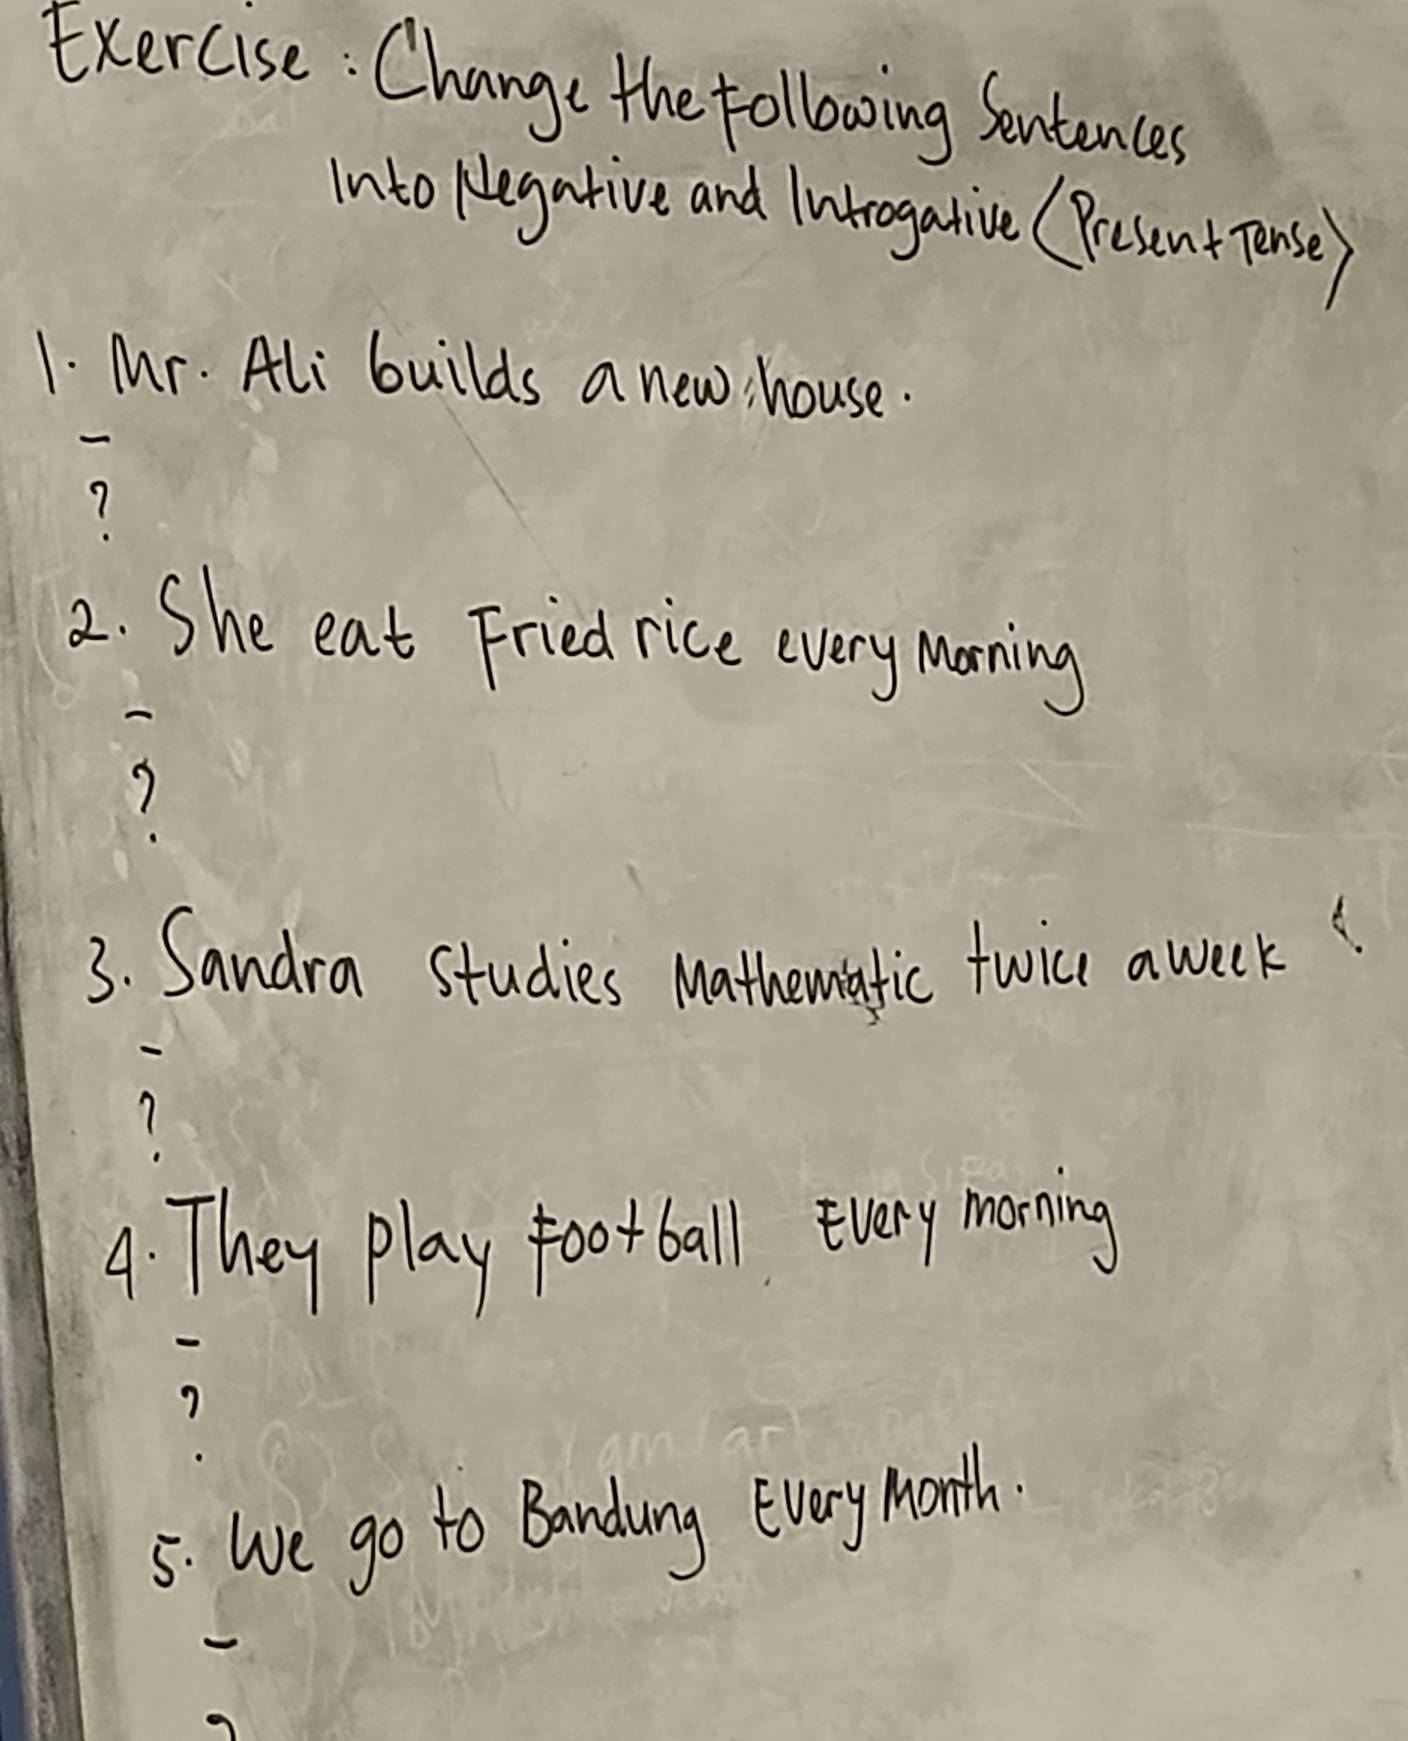 Exercise : Change the Following Sentences
Into Negative and Introgative (Present Tense)
1. Mr. Ali builds a new house.
-
?
2. She eat Fried rice every Morning
-
?
3. Sandra studies Mathematic twice a week
-
?
4. They play Football Every morning
-
?
5. We go to Bandung Every Month.
-
?